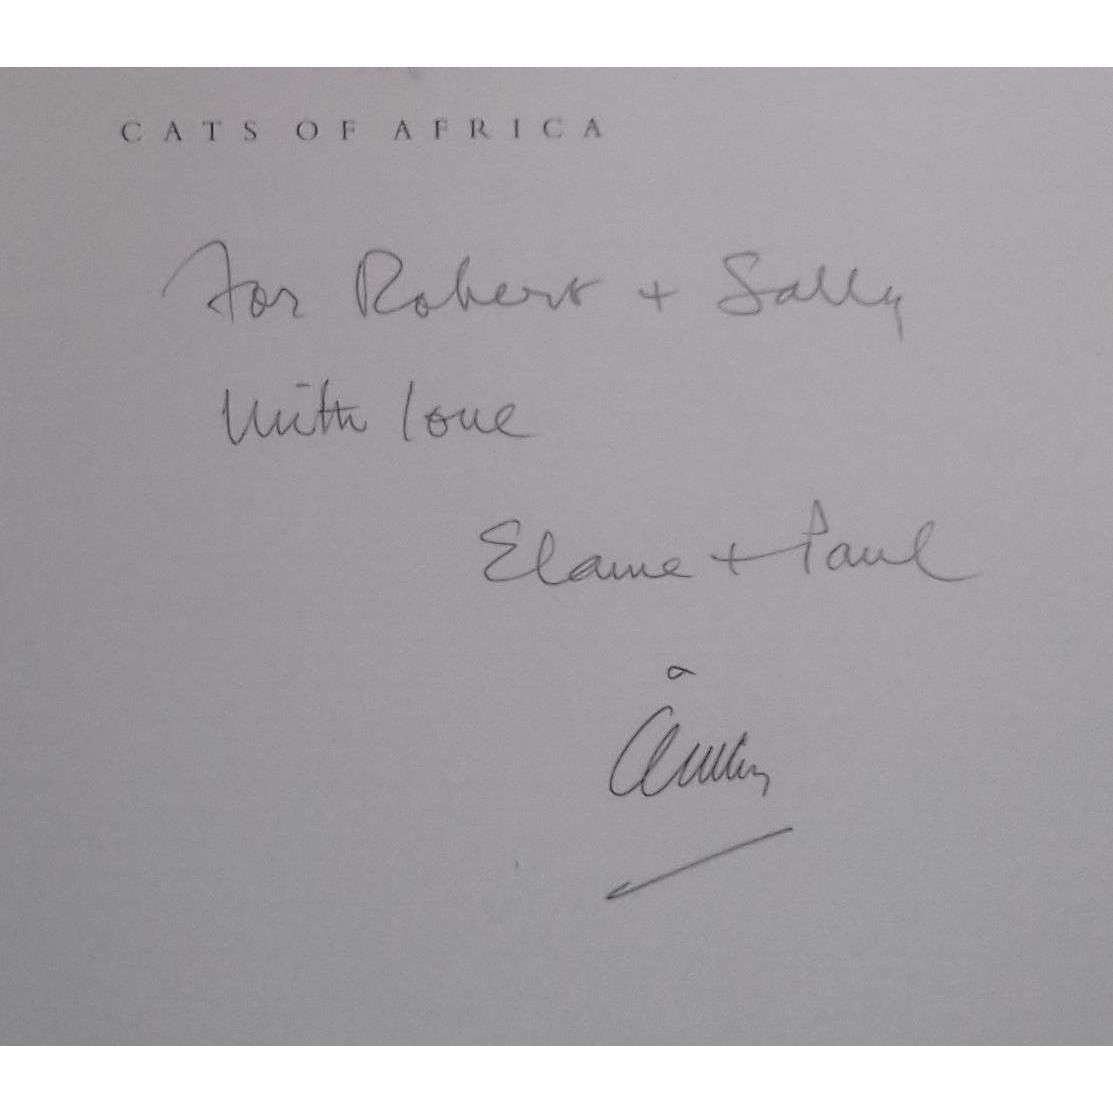 CATS OF AFRICA
For Robert + Sally
With love
Elaine + Paul